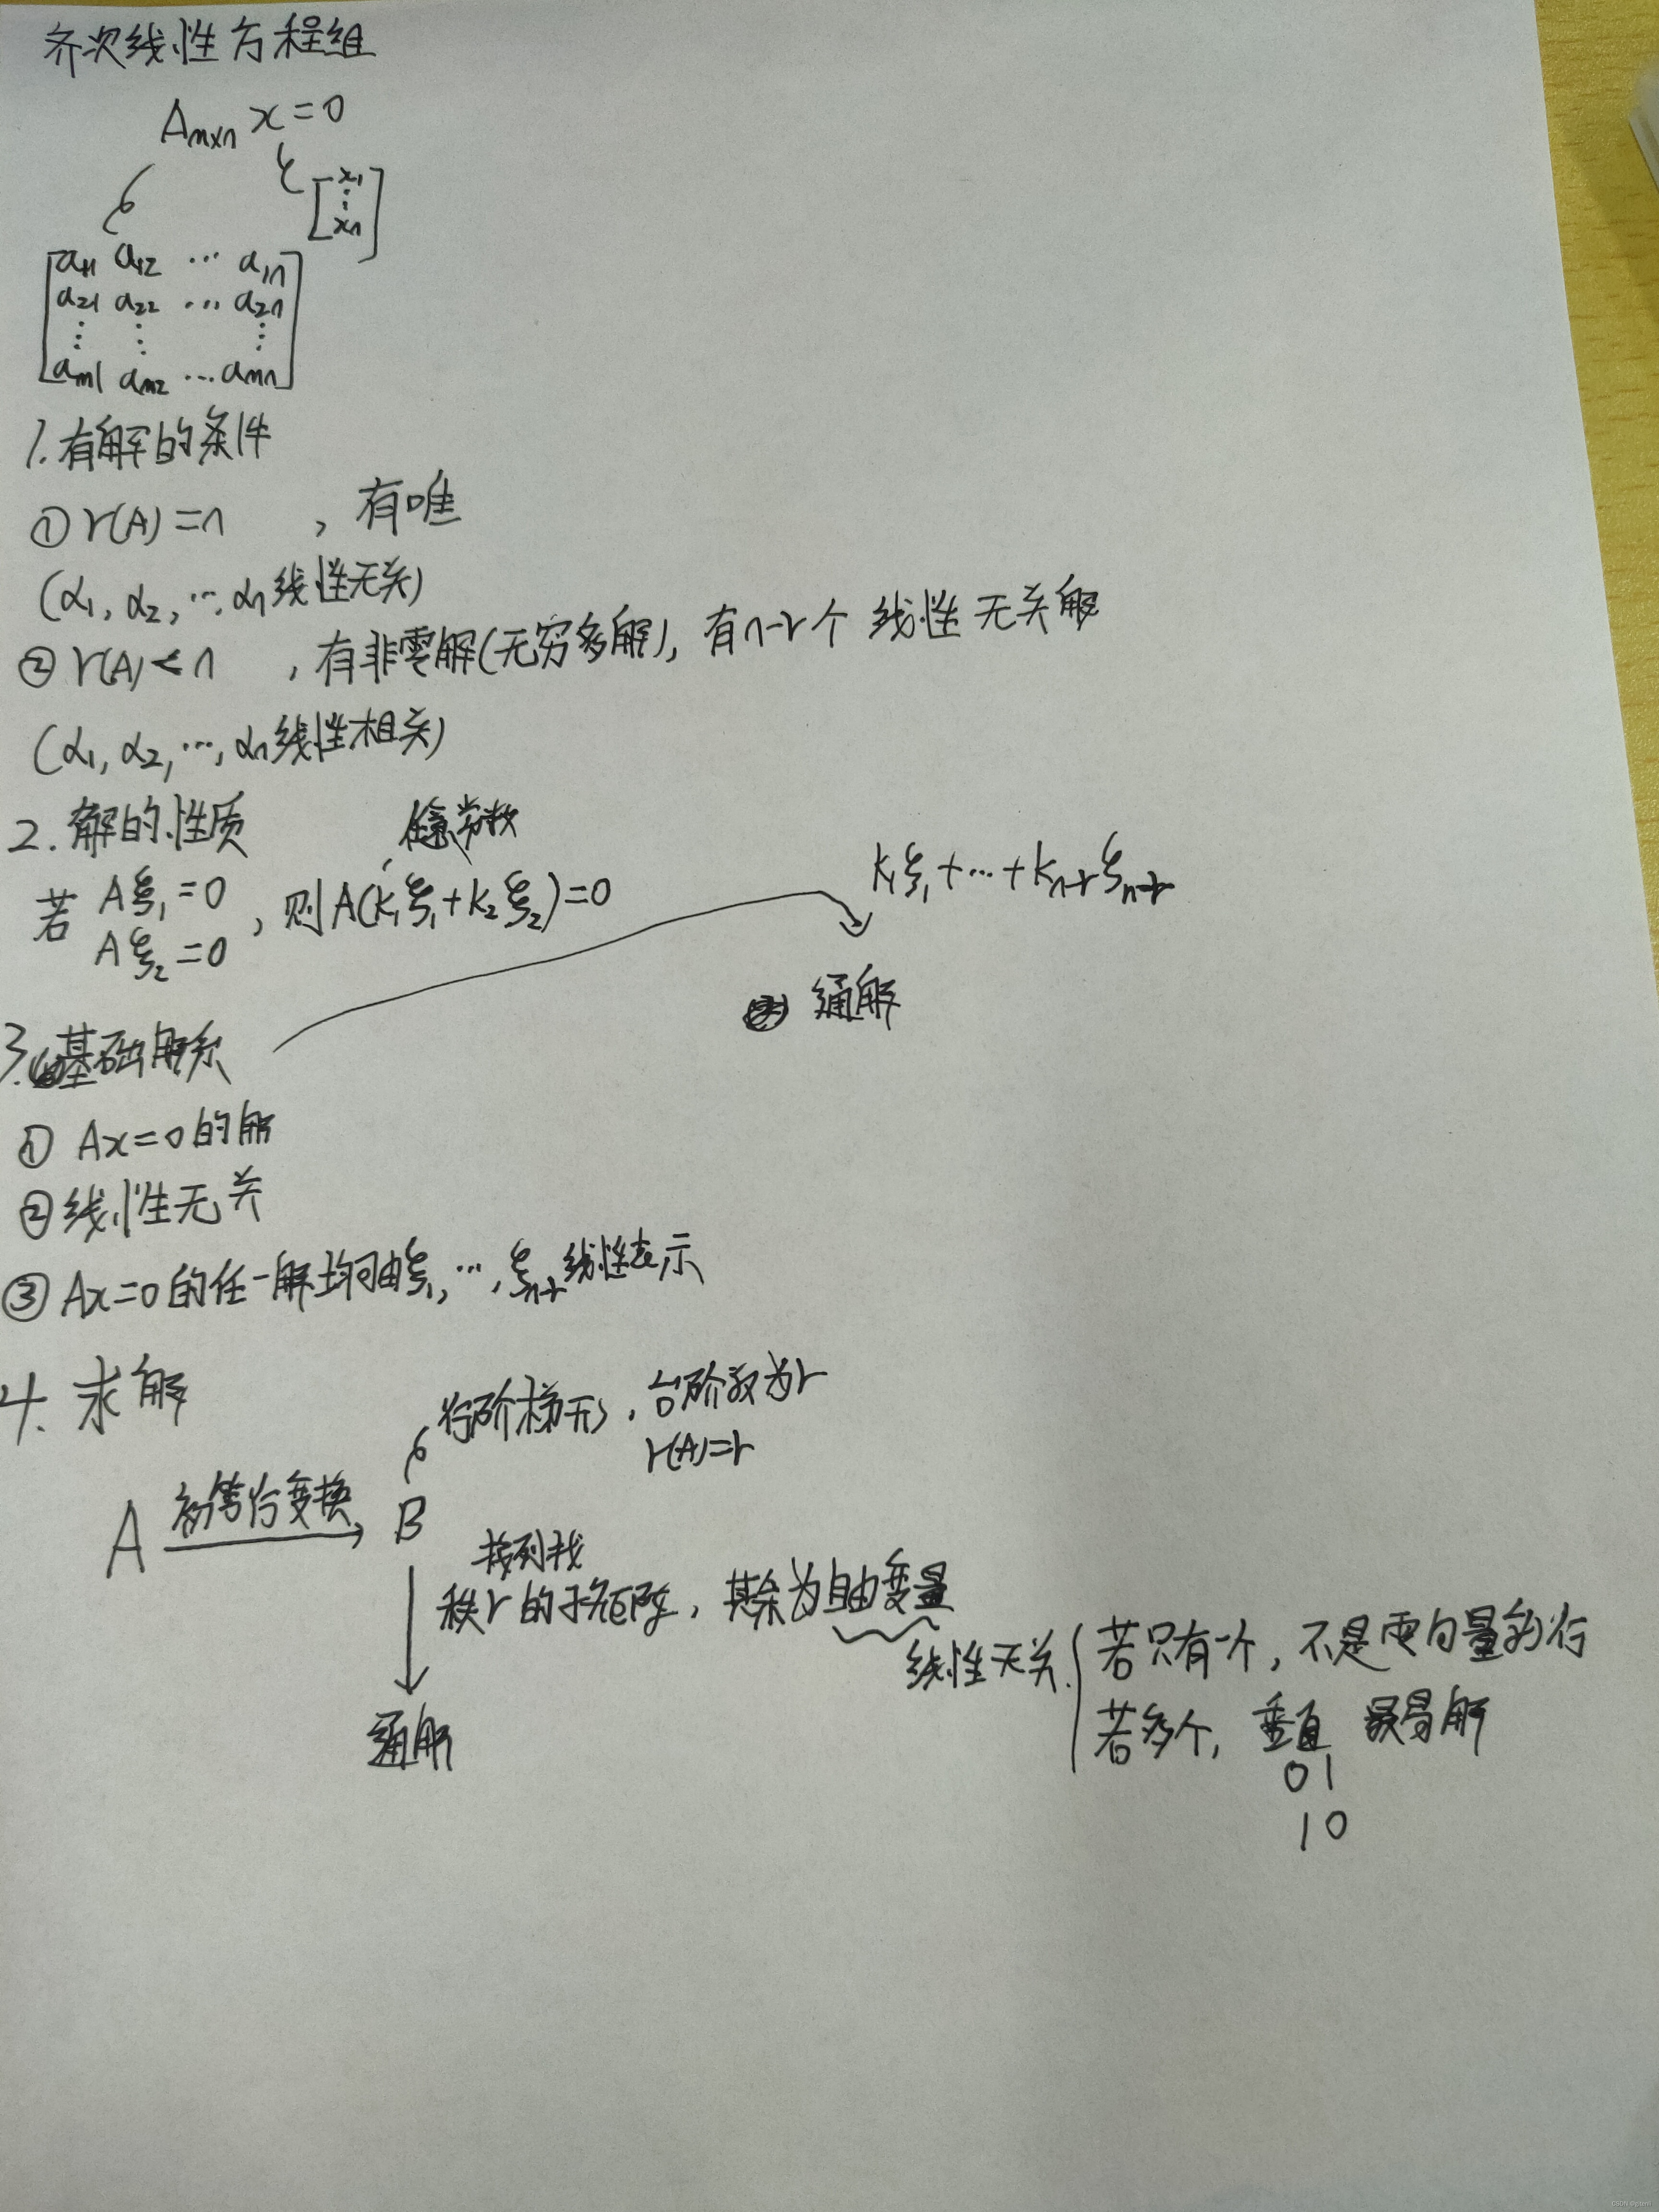 齐次线性方程组
Aₘₓₙ x = 0
[x₁ ⋮ xₙ]
[a₁₁ a₁₂ ⋯ a₁ₙ
a₂₁ a₂₂ ⋯ a₂ₙ
⋮ ⋮ ⋮
aₘ₁ aₘ₂ ⋯ aₘₙ]
1. 有解的条件
① r(A) = n ，有唯
(α₁, α₂, ⋯, αₙ线性无关)
② r(A) < n ，有非零解(无穷多解)，有n-r个 线性无关解
(α₁, α₂, ⋯, αₙ线性相关)
2. 解的性质
任意常数
若 Aξ₁=0
Aξ₂=0 ，则A(k₁ξ₁+k₂ξ₂)=0
k₁ξ₁+⋯+kₙ₋ᵣξₙ₋ᵣ
通解
3. 基础解系
① Ax=0的解
② 线性无关
③ Ax=0的任一解均可由ξ₁, ⋯, ξₙ₋ᵣ线性表示
4. 求解
行阶梯形，台阶数为r
r(A)=r
A 初等行变换 B
按列找
秩r的子矩阵，其余为自由变量
线性无关 { 若只有一个，不是零向量就行
若多个，垂直 最易解
0 1
1 0
通解
CSDN